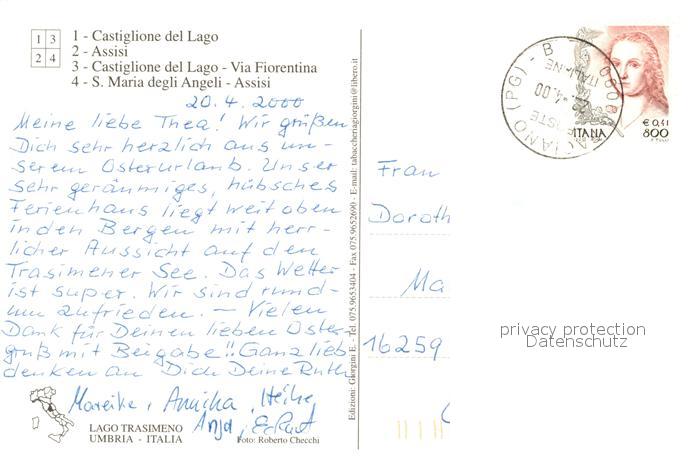 1 3
2 4
1 - Castiglione del Lago
2 - Assisi
3 - Castiglione del Lago - Via Fiorentina
4 - S. Maria degli Angeli - Assisi
20.4.2000
Meine liebe Thea! Wir grüßen
Dich sehr herzlich aus un-
serem Osterurlaub. Unser
sehr geräumiges, hübsches
Ferienhaus liegt weit oben
in den Bergen mit herr-
licher Aussicht auf den
Trasimener See. Das Wetter
ist super. Wir sind rund-
um zufrieden. — Vielen
Dank für Deinen lieben Oster-
gruß mit Beigabe!! Ganz lieb
denken an Dich Deine Ruth
Mareike, Annika, Heike,
Anja, Eckart
LAGO TRASIMENO
UMBRIA - ITALIA
Foto: Roberto Checchi
Edizioni: Giorgini E. - Tel. 075.9653404 - Fax 075.9652690 - E-mail: tabaccheriagiorgini@libero.it
ITALIA
€ 0,41
800
CIANO (PG) - B
POSTE
ITALIANE
.4.00
Frau
Doroth
Ma
16259
privacy protection
Datenschutz